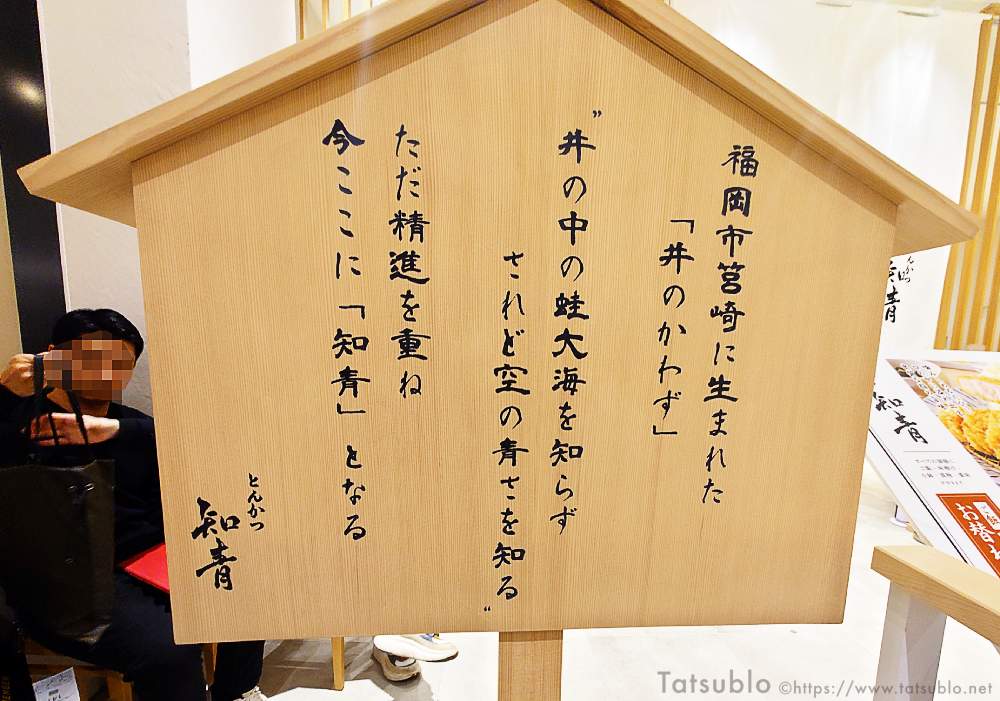 福岡市筥崎に生まれた
「井のかわず」
"井の中の蛙大海を知らず
されど空の青さを知る"
ただ精進を重ね
今ここに「知青」となる
とんかつ
知青
とんかつ
知青
知青
お替わ
Tatsublo ©https://www.tatsublo.net